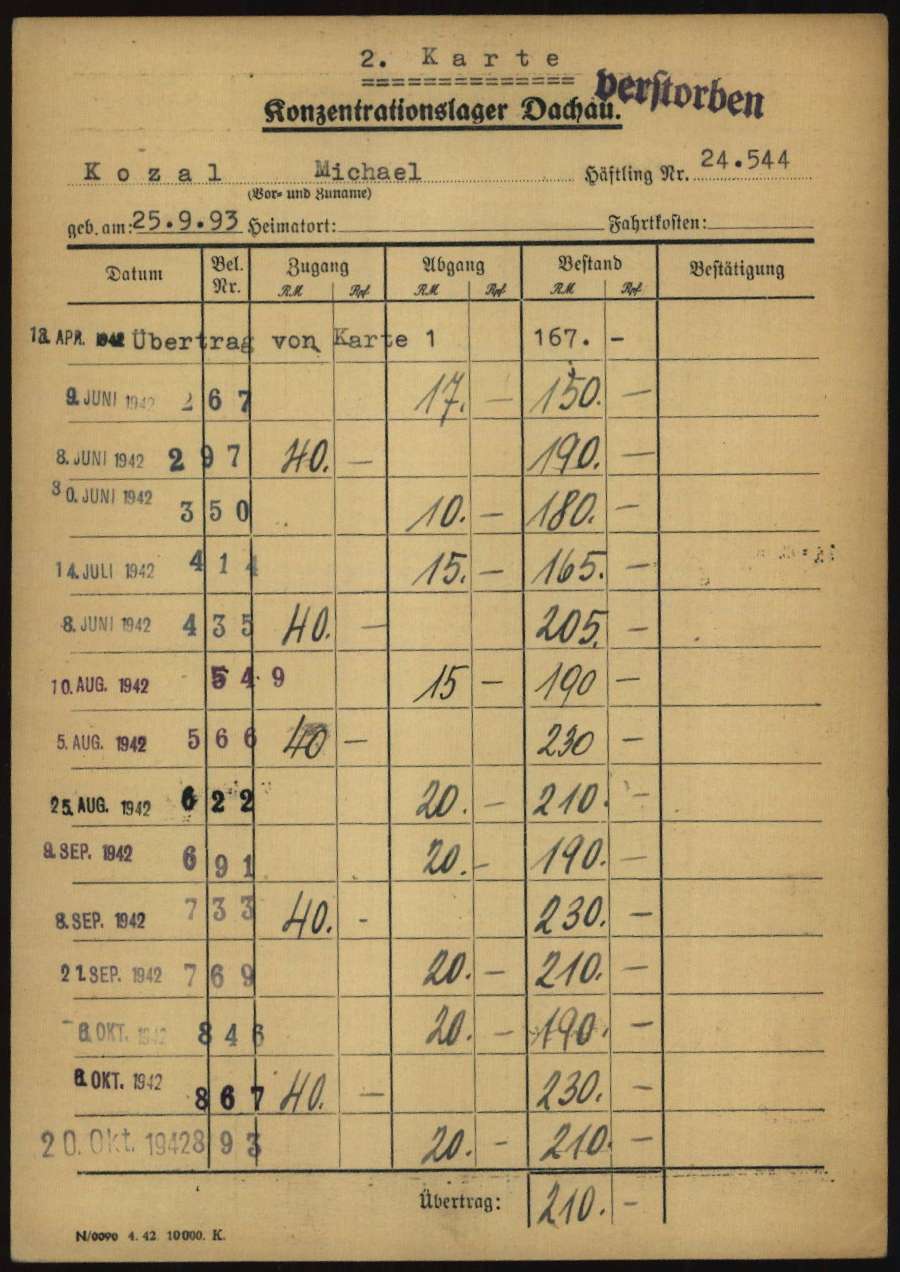 2. Karte
==============
verstorben
Konzentrationslager Dachau.
Kozal Michael Häftling Nr. 24.544
(Vor- und Zuname)
geb. am: 25.9.93 Heimatort: Fahrtkosten:
Datum Bel. Nr. Zugang Abgang Bestand Bestätigung
RM Rpf RM Rpf RM Rpf
APR. 1942 Übertrag von Karte 1 167. -
9. JUNI 1942 267 17. — 150. —
8. JUNI 1942 297 40. — 190. —
30. JUNI 1942 350 10. — 180. —
14. JULI 1942 414 15. — 165. —
8. JUNI 1942 435 40. — 205. —
10. AUG. 1942 549 15 — 190 —
5. AUG. 1942 566 40 — 230 —
25. AUG. 1942 622 20. — 210. —
9. SEP. 1942 691 20. - 190. —
8. SEP. 1942 733 40. - 230. —
21. SEP. 1942 769 20. — 210. —
6. OKT. 1942 846 20. — 190. —
6. OKT. 1942 867 40. — 230. —
20. Okt. 1942 893 20. — 210. —
Übertrag: 210. —
N/0090 4. 42 10000. K.